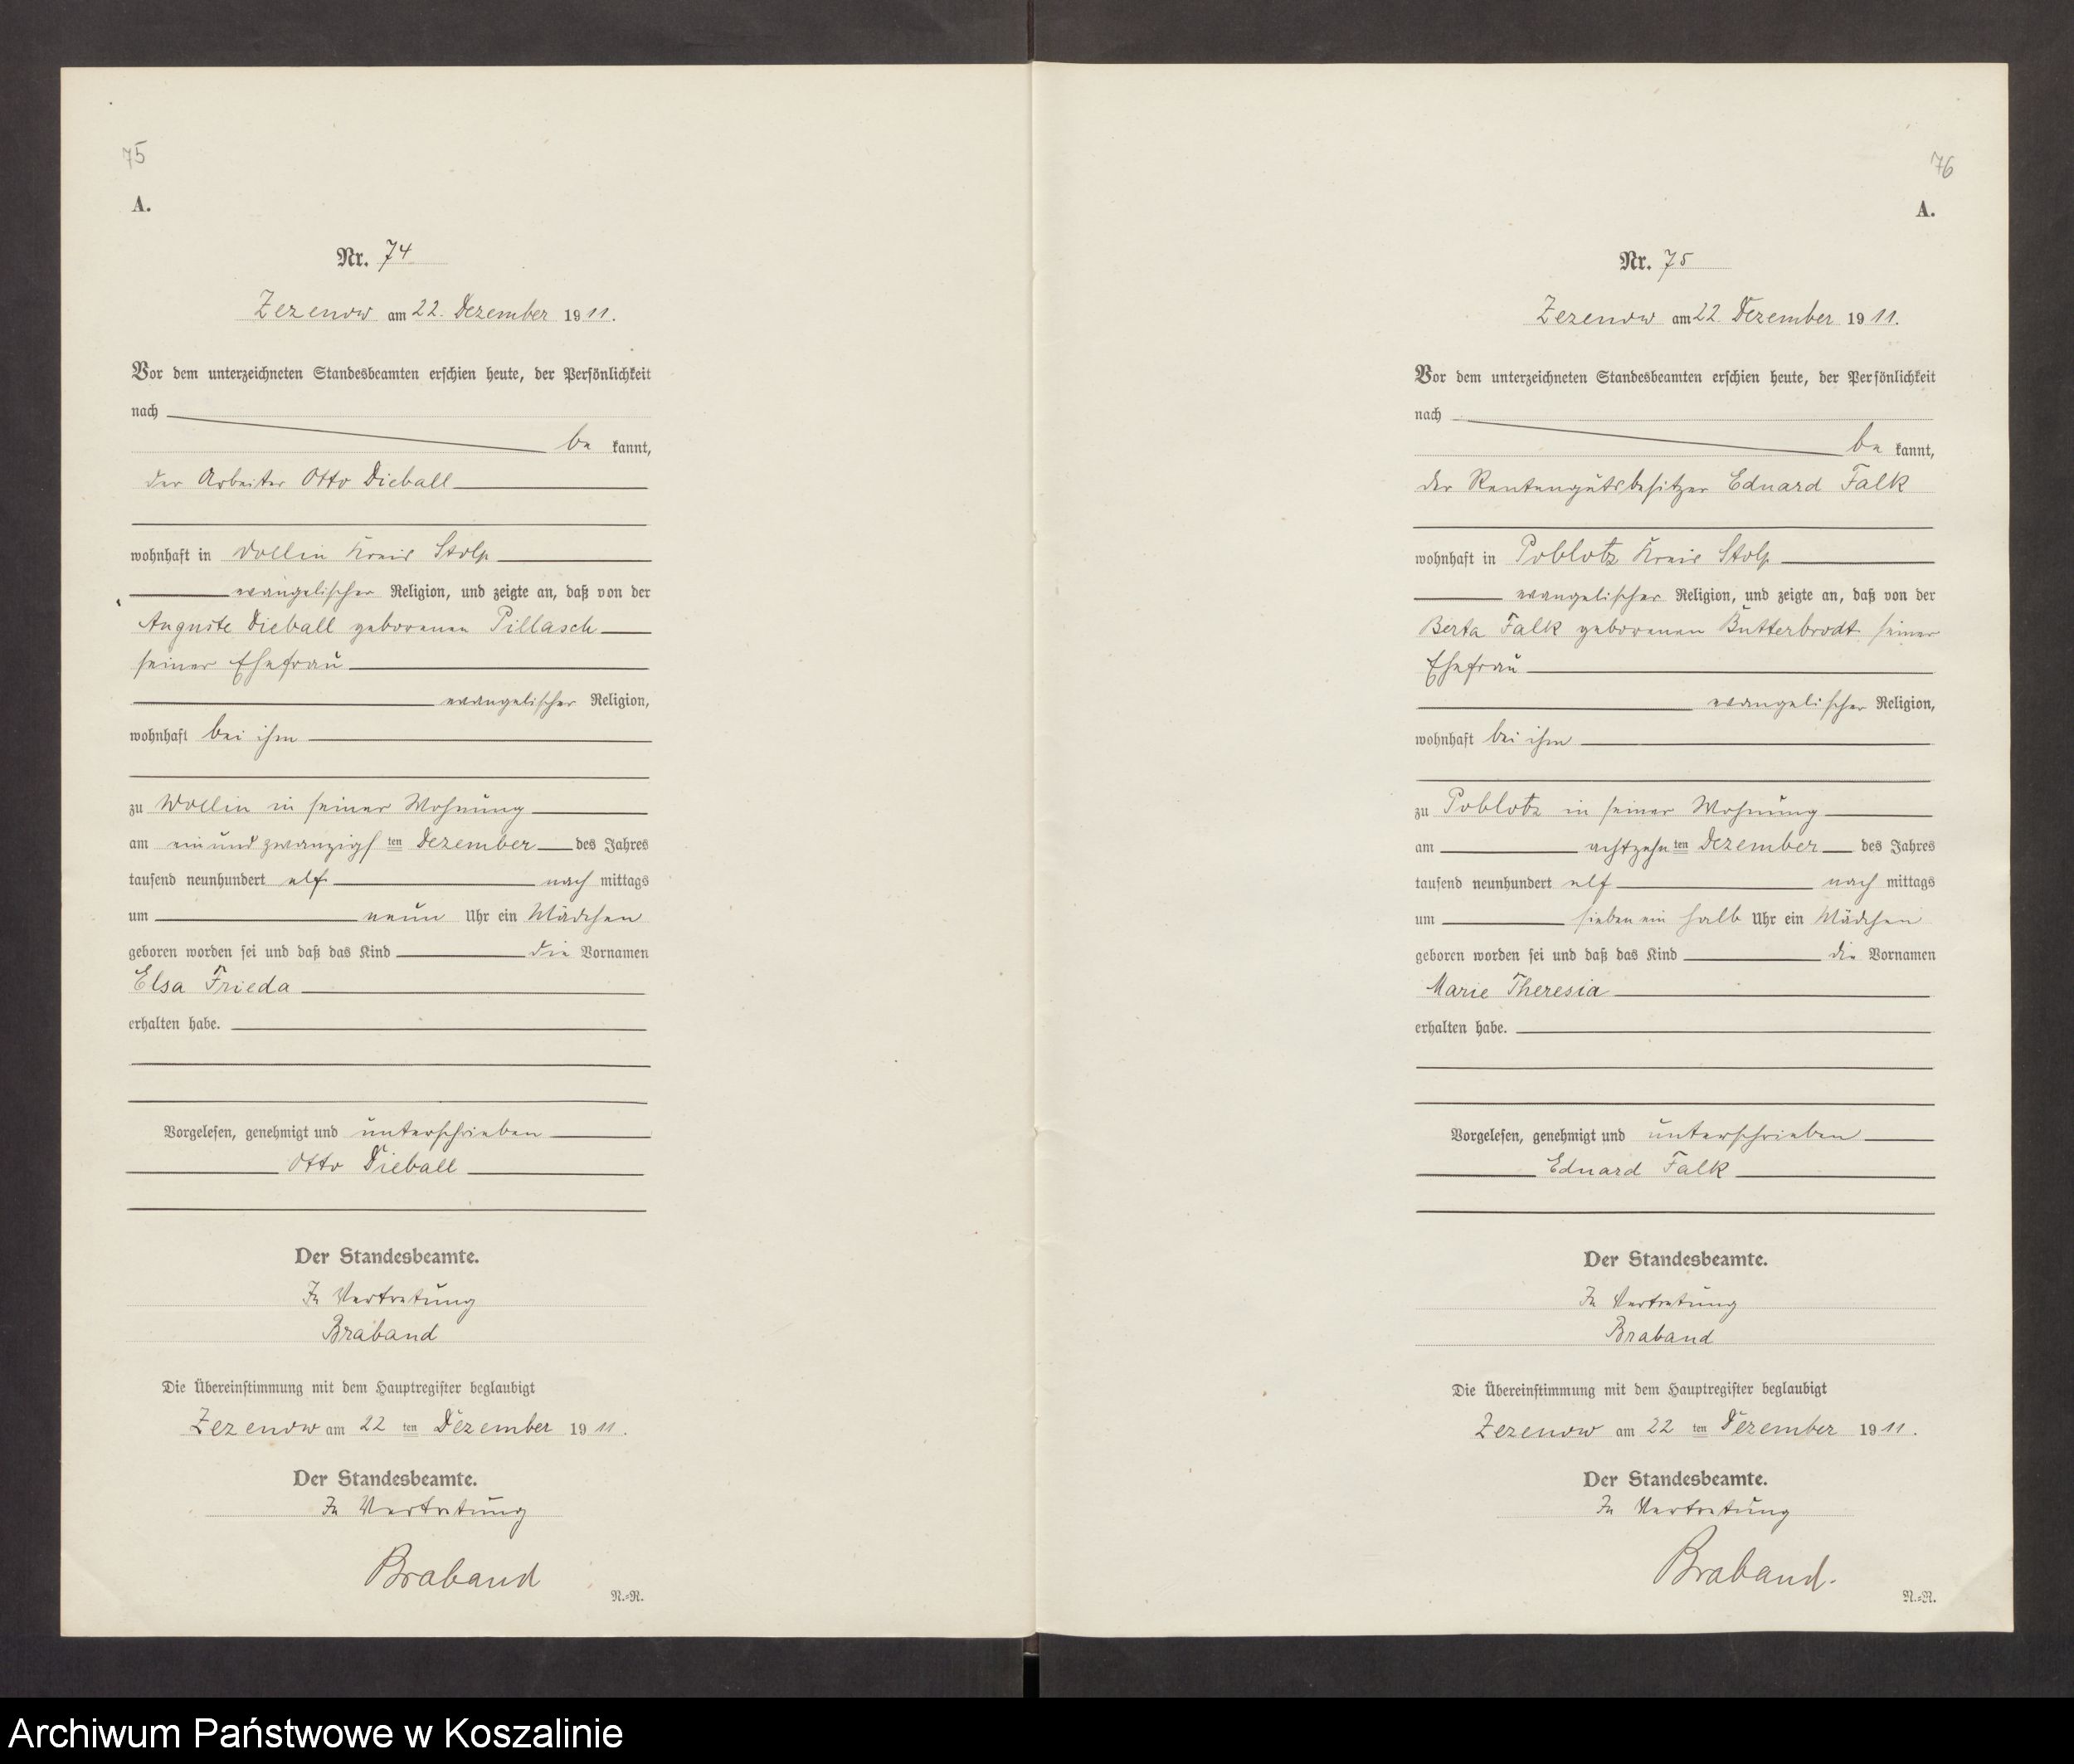 75
A.
Nr. 74
Zezenow am 22. Dezember 1911.
Vor dem unterzeichneten Standesbeamten erschien heute, der Persönlichkeit
nach
be kannt,
der Arbeiter Otto Dieball
wohnhaft in Wollin Kreis Stolp
evangelischer Religion, und zeigte an, daß von der
Auguste Dieball geborenen Pillasch
seiner Ehefrau
evangelischer Religion,
wohnhaft bei ihm
zu Wollin in seiner Wohnung
am einundzwanzigsten Dezember des Jahres
tausend neunhundert elf nach mittags
um neun Uhr ein Mädchen
geboren worden sei und daß das Kind die Vornamen
Elsa Frieda
erhalten habe.
Vorgelesen, genehmigt und unterschrieben
Otto Dieball
Der Standesbeamte.
In Vertretung
Braband
Die Übereinstimmung mit dem Hauptregister beglaubigt
Zezenow am 22 ten Dezember 1911.
Der Standesbeamte.
In Vertretung
Braband
N.=R.
76
A.
Nr. 75
Zezenow am 22. Dezember 1911.
Vor dem unterzeichneten Standesbeamten erschien heute, der Persönlichkeit
nach
be kannt,
der Rentengutsbesitzer Eduard Falk
wohnhaft in Poblotz Kreis Stolp
evangelischer Religion, und zeigte an, daß von der
Berta Falk geborenen Butterbrodt seiner
Ehefrau
evangelischer Religion,
wohnhaft bei ihm
zu Poblotz in seiner Wohnung
am achtzehnten Dezember des Jahres
tausend neunhundert elf nach mittags
um sieben ein halb Uhr ein Mädchen
geboren worden sei und daß das Kind die Vornamen
Marie Theresia
erhalten habe.
Vorgelesen, genehmigt und unterschrieben
Eduard Falk
Der Standesbeamte.
In Vertretung
Braband
Die Übereinstimmung mit dem Hauptregister beglaubigt
Zezenow am 22 ten Dezember 1911.
Der Standesbeamte.
In Vertretung
Braband.
N.=R.
Archiwum Państwowe w Koszalinie